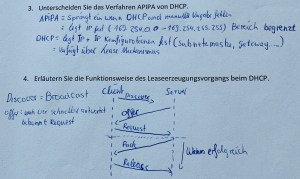 3. Unterscheiden Sie das Verfahren APIPA von DHCP.
APIPA = springt ein wenn DHCP und manuelle Vergabe fehlen
= legt IP fest (169.254.0.0 - 169.254.255.255) Bereich begrenzt
DHCP = legt IP + IP Konfigurationen fest (Subnetmaske, Gateway...)
= verfügt über Lease Mechanismus
4. Erläutern Sie die Funktionsweise des Leaseerzeugungsvorgangs beim DHCP.
Discover = Broadcast
Client Server
Discover
Offer
offer = wer schneller antwortet
bekommt Request
Request
Wenn erfolgreich
Release